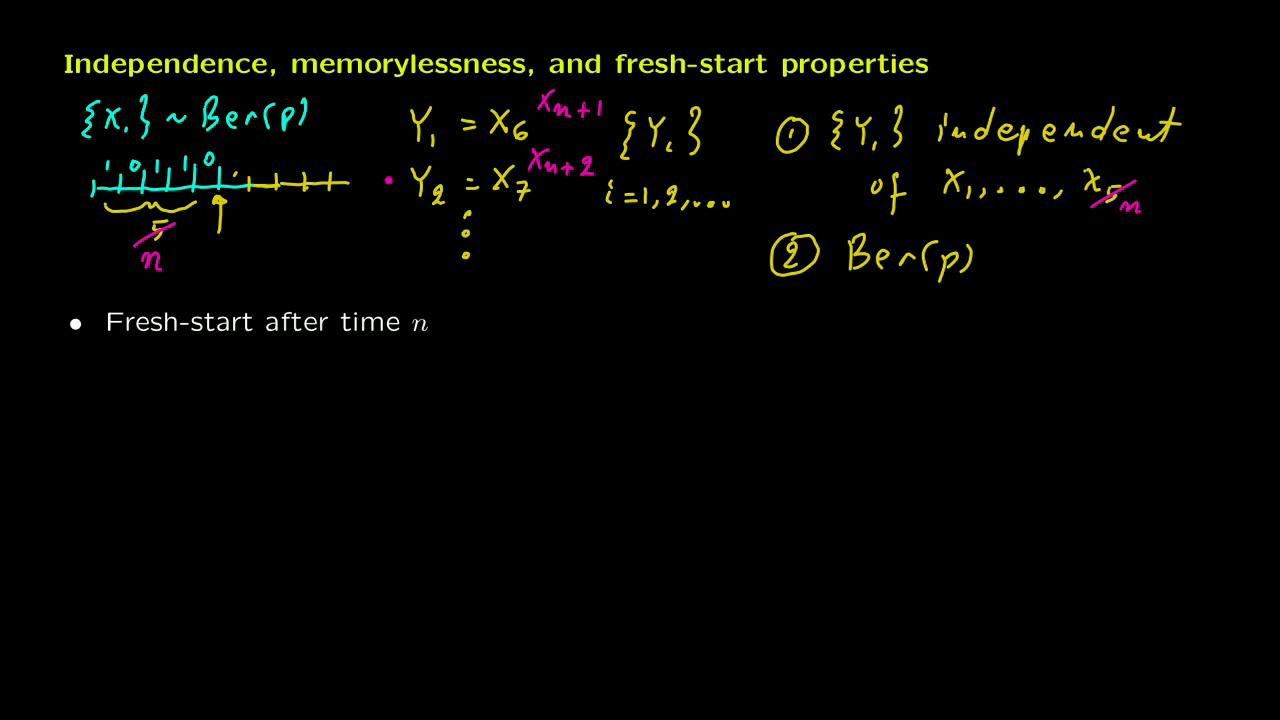 Independence, memorylessness, and fresh-start properties
{X_i} ~ Ber(p)
1 0 1 1 0
5 n
Y_1 = X_6 X_{n+1}
Y_2 = X_7 X_{n+2}
{Y_i}
i = 1, 2, ...
① {Y_i} independent
of X_1, ..., X_5 n
② Ber(p)
• Fresh-start after time n